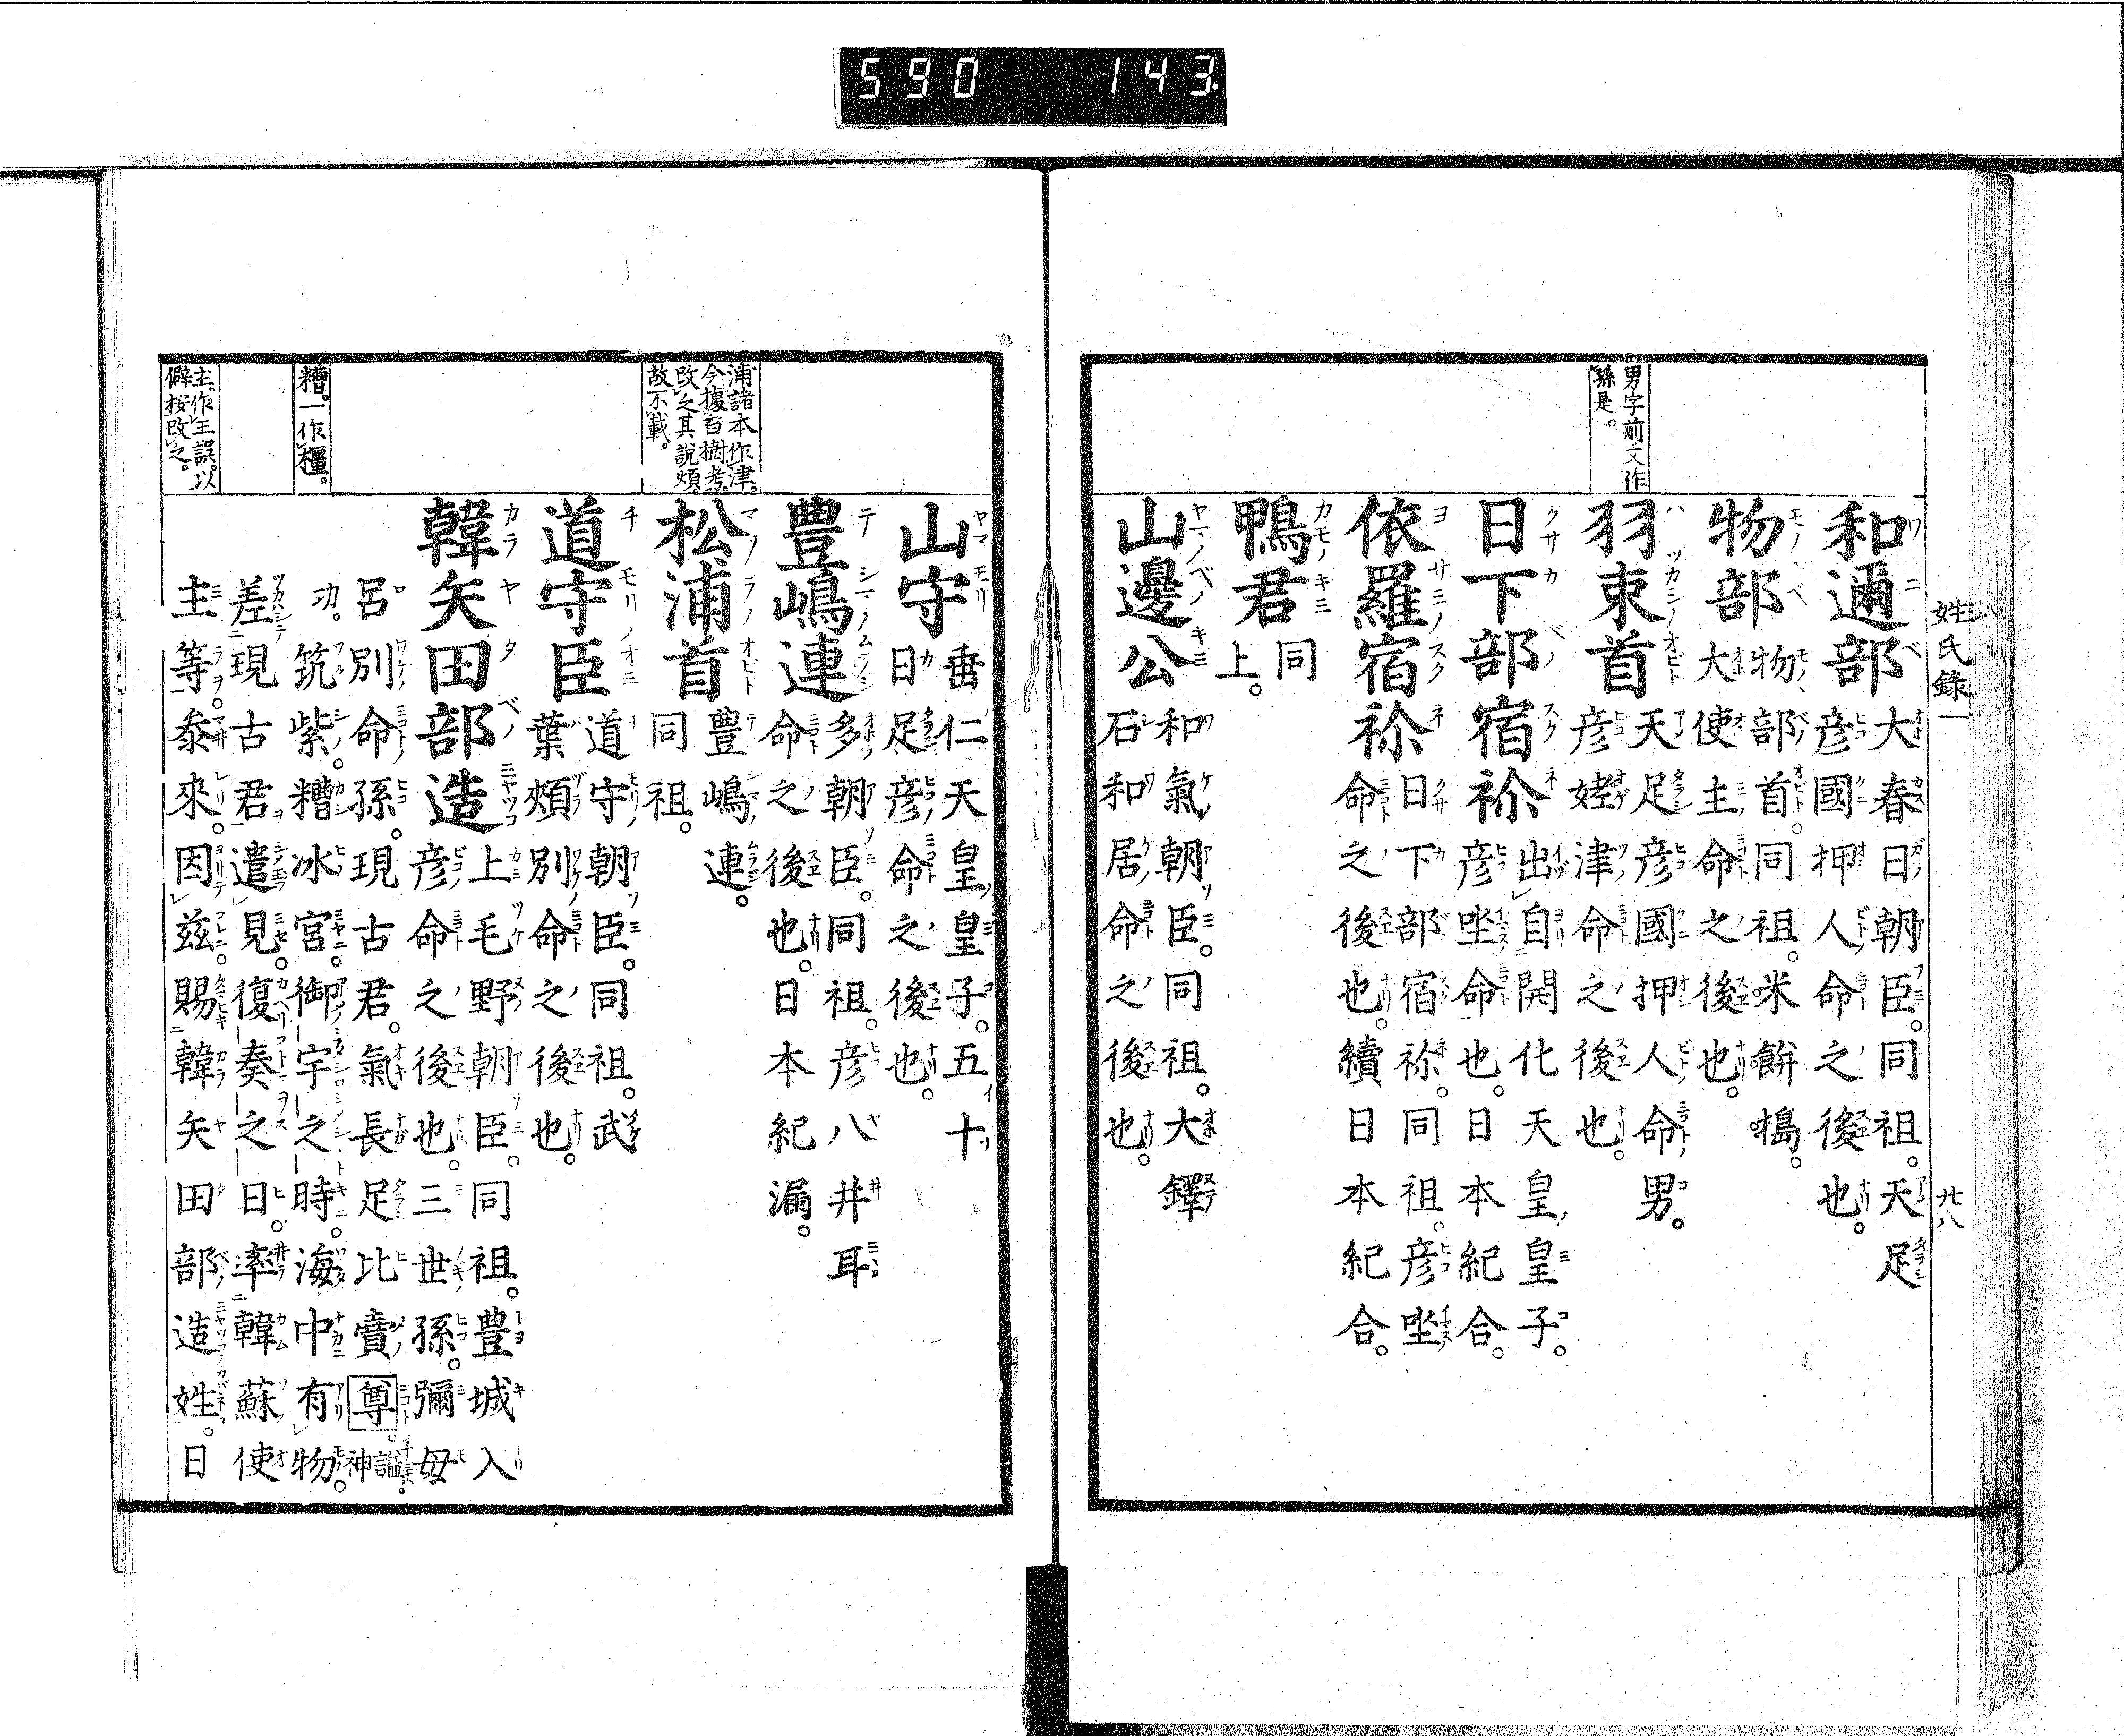 590 143
姓氏錄一
廿八
男字前文作
孫是。
和邇部 大春日朝臣。同祖。天足
彦國押人命之後也。
物部 物部首。同祖。米餅搗。
大使主命之後也。
羽束首 天足彦國押人命男。
彦姥津命之後也。
日下部宿祢 出自開化天皇皇子。
彦坐命也。日本紀合。
依羅宿祢 日下部宿祢。同祖。彦坐
命之後也。續日本紀合。
鴨君 同
上。
山邊公 和氣朝臣。同祖。大鐸
石和居命之後也。
浦諸本作津。
今據百樹考。
改之其說煩。
故不載。
糟。一作糧。
主。作王誤。以
僻按改之。
山守 垂仁天皇皇子。五十
日足彦命之後也。
豊嶋連 多朝臣。同祖。彦八井耳
命之後也。日本紀漏。
松浦首 豊嶋連。
同祖。
道守臣 道守朝臣。同祖。武
葉頰別命之後也。
韓矢田部造 上毛野朝臣。同祖。豊城入
彦命之後也。三世孫。彌母
呂別命孫。現古君。氣長足比賣尊。謚神
功。筑紫。糟冰宮。御宇之時。海中有物。
差現古君遣見。復奏之日。率韓蘇使
主等。叅來。因茲。賜韓矢田部造姓。日